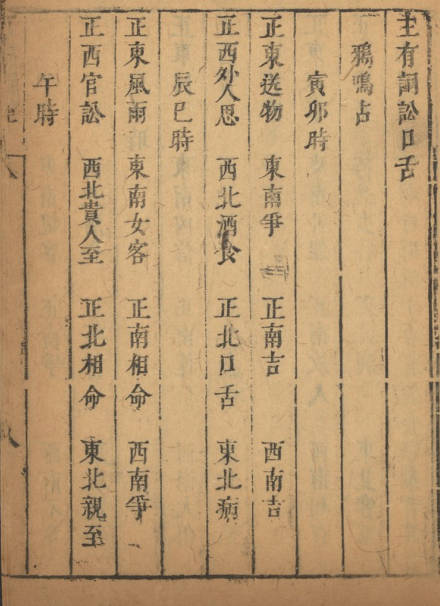 主有詞訟口舌
鴉鳴占
寅卯時
正東送物　東南爭　正南吉　西南吉
正西外人思　西北酒食　正北口舌　東北病
辰巳時
正東風雨　東南女客　正南相命　西南爭
正西官訟　西北貴人至　正北相命　東北親至
午時